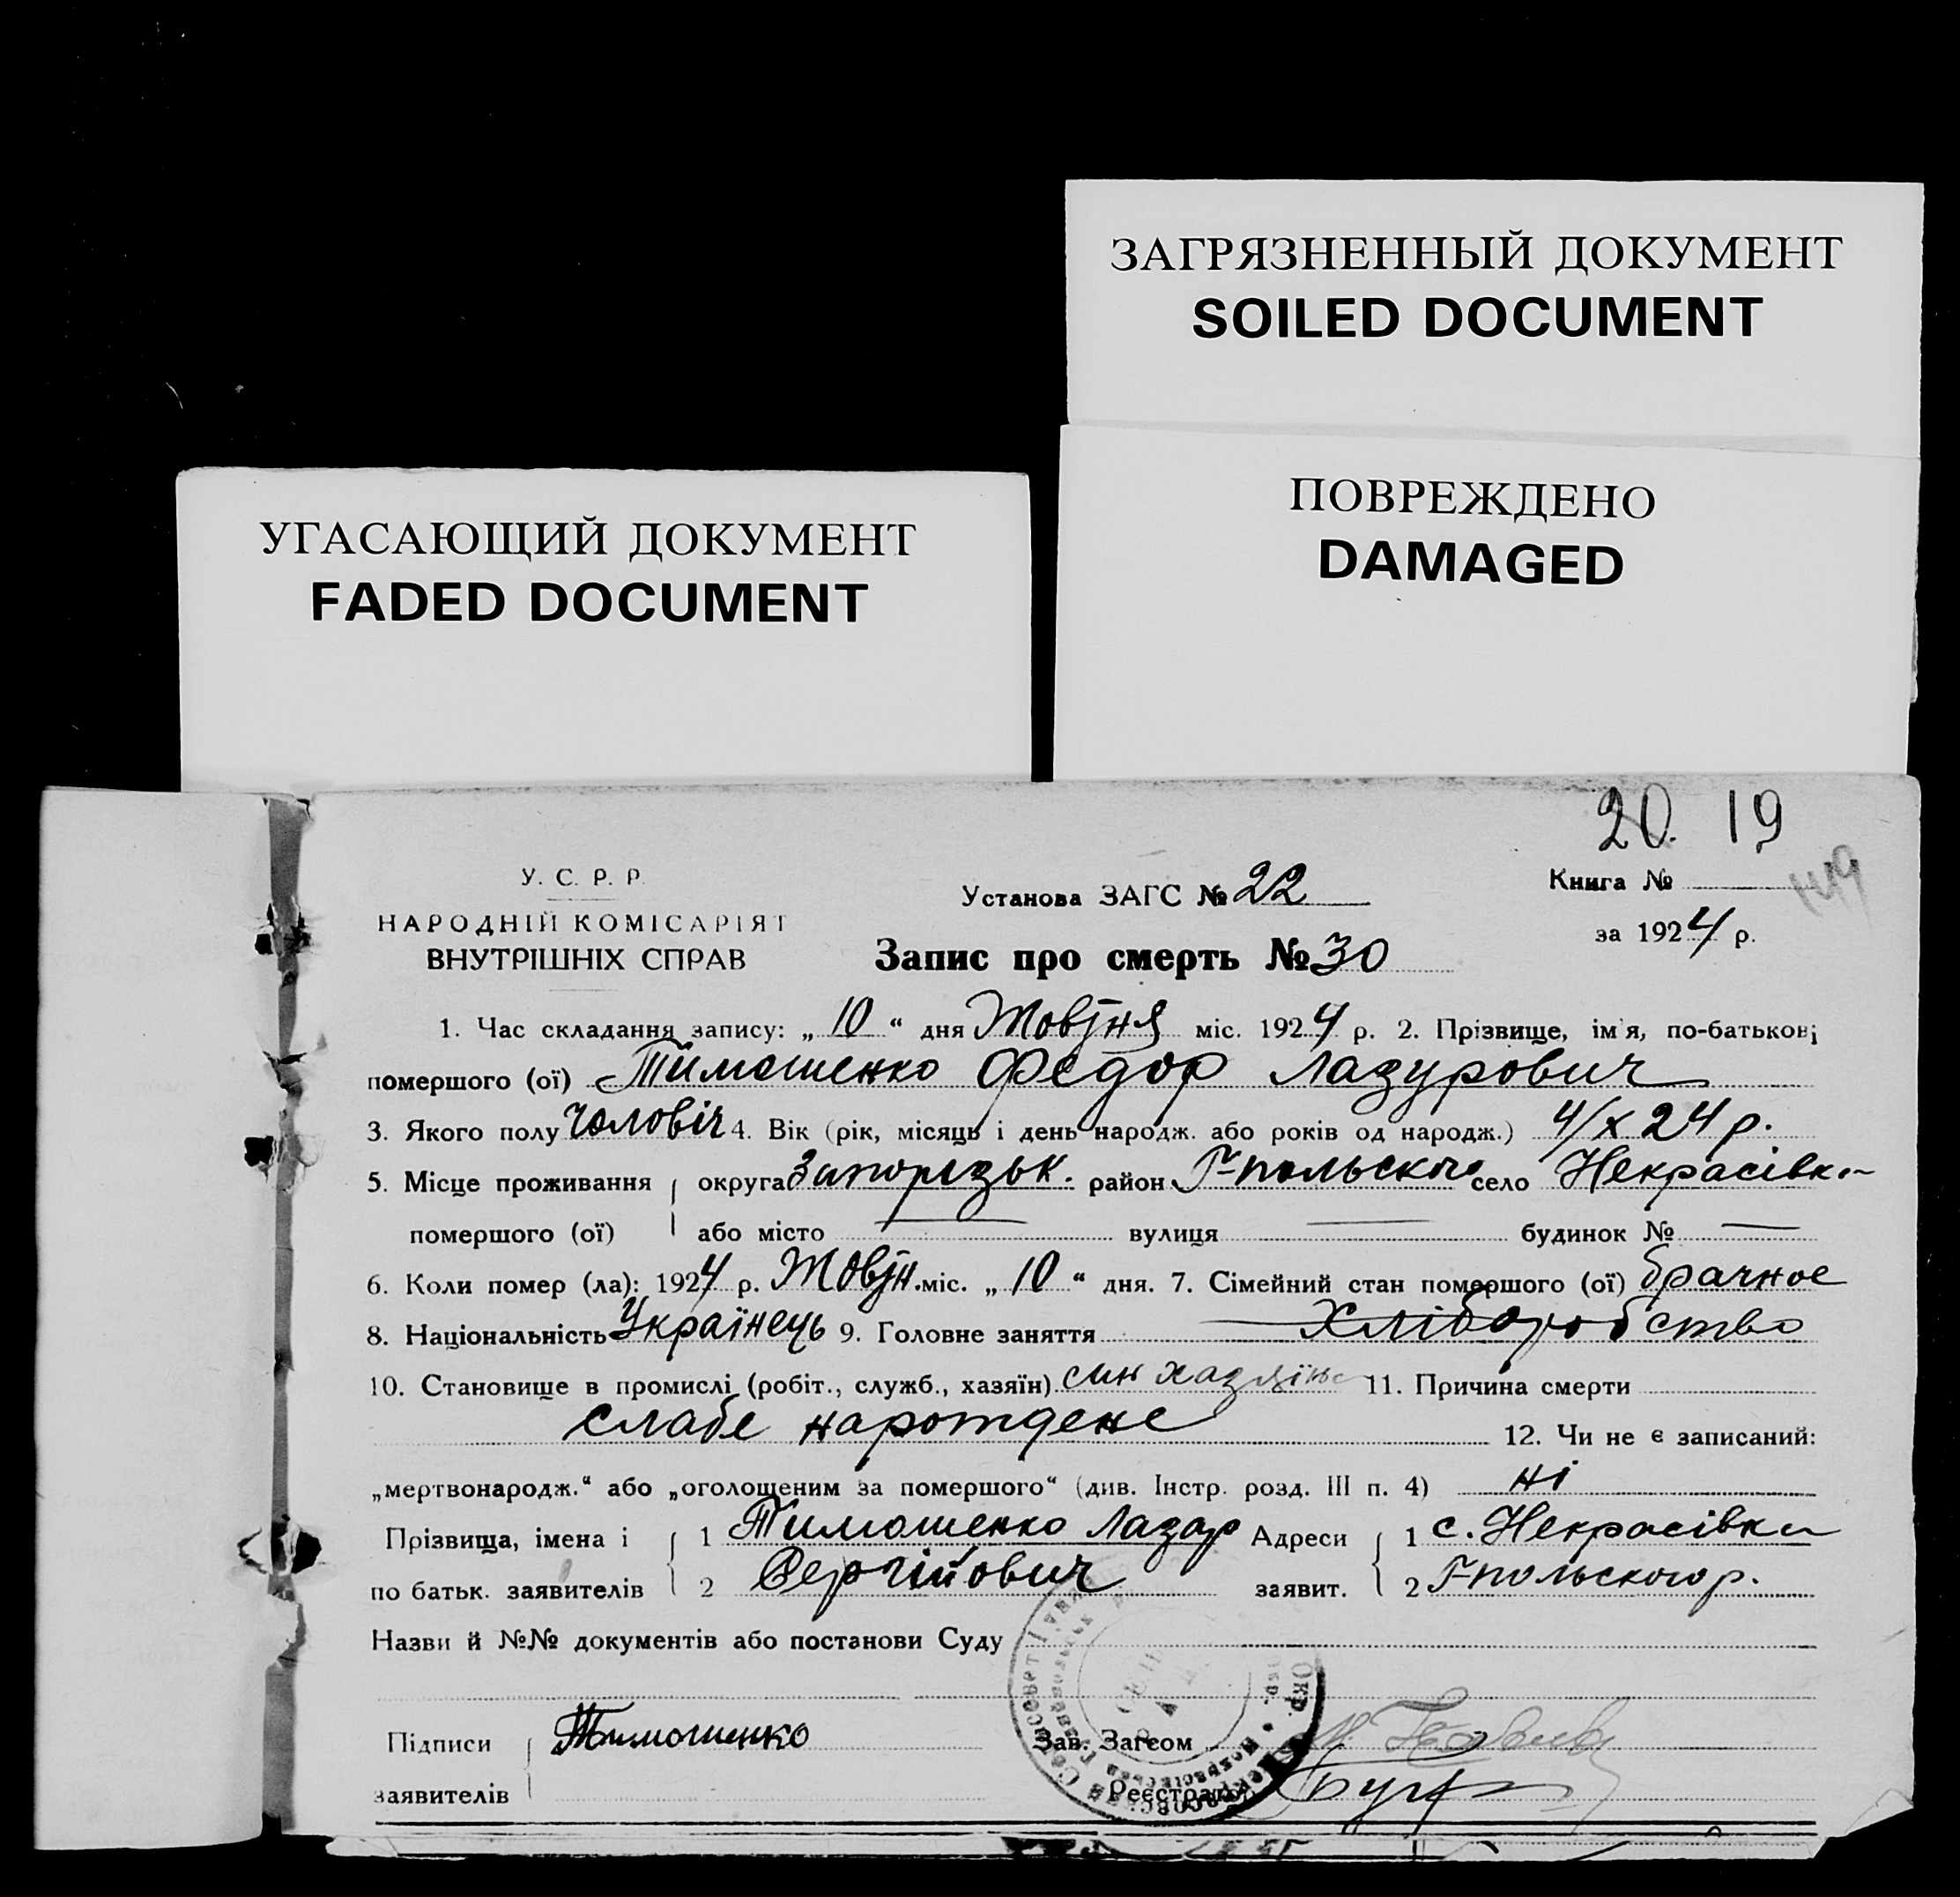 ЗАГРЯЗНЕННЫЙ ДОКУМЕНТ
SOILED DOCUMENT
ПОВРЕЖДЕНО
DAMAGED
УГАСАЮЩИЙ ДОКУМЕНТ
FADED DOCUMENT
20. 19
149
У. С. Р. Р.
НАРОДНІЙ КОМІСАРІЯТ
ВНУТРІШНІХ СПРАВ
Установа ЗАГС № 22
Запис про смерть № 30
Книга №
за 1924 р.
1. Час складання запису: „ 10 “ дня Жовтня міс. 1924 р. 2. Прізвище, ім'я, по-батькові
помершого (ої) Тимошенко Федор Лазурович
3. Якого полу чоловіч 4. Вік (рік, місяць і день народж. або років од народж.) 4/X 24 р.
5. Місце проживання округа Запорізьк. район Г-польского село Некрасівка
помершого (ої) або місто — вулиця — будинок № —
6. Коли помер (ла): 1924 р. Жовтн. міс. „ 10 “ дня. 7. Сімейний стан помершого (ої) брачное
8. Національність Українець 9. Головне заняття — Хліборобство
10. Становище в промислі (робіт., служб., хазяїн) син хазяїна 11. Причина смерти
слабе нарождене 12. Чи не є записаний:
„мертвонародж.“ або „оголошеним за помершого“ (див. Інстр. розд. III п. 4) ні
Прізвища, імена і 1 Тимошенко Лазар Адреси 1 с. Некрасівки
по батьк. заявителів 2 Сергійович заявит. 2 Г-польского р.
Назви й №№ документів або постанови Суду
Підписи Тимошенко Зав. Загсом
заявителів Реєстратор